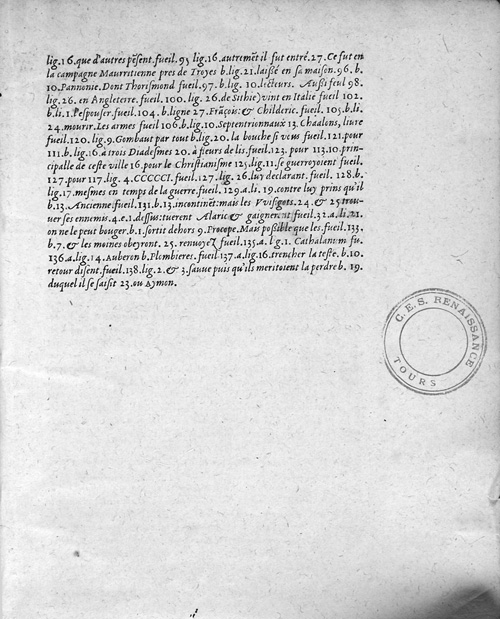 lig.16.que d'autres pẽsent.fueil.93 lig.16.autremẽt il fut entré.27.Ce fut en
la campagne Maurritienne pres de Troyes b.lig.21.laissé en sa maison.96.b.
10.Pannonie.Dont Thorismond fueil.97.b.lig. 10.lecteurs. Aussi feul 98.
lig.26.en Angleterre.fueil.100.lig. 26.de Sithie) vint en Italie fueil 102.
b.li.1.l'espouser.fueil.104.b.ligne 27.Frãçois:& Childeric.fueil. 105.b.li.
24.mourir.Les armes fueil 106.b.lig.10.Septentrionnaux 13. Châalons, liure
fueil.120.lig.9.Gombaut par tout b.lig.20. la bouche si vous fueil.121.pour
111.b.lig.16.à trois Diadesmes 20. à fleurs de lis.fueil.123. pour 113.10.prin-
cipalle de ceste ville 16.pour le Christianisme 125.lig.11.se guerroyoient fueil.
127.pour 117.lig. 4.CCCCCI.fueil.127.lig.26.luy declarant.fueil. 128.b.
lig.17.mesmes en temps de la guerre.fueil. 129.a.li.19.contre luy prins qu'il
b.13.Ancienne.fueil.131.b.13.incontinẽt:mais les Vvisigots.24.& 25 trou-
uer ses ennemis.4.e.1.dessus:tuerent Alaric & gaignerent fueil.32.a.li.21.
on ne le peut bouger.b.1.sortit dehors 9.Procope.Mais possible que les.fueil.133.
b.7.& les moines obeyront. 25. renuoyez fueil.135.a. lig.1. Cathalanum fu.
136.a.lig.14.Auberon b.Plombieres.fueil 137.a.lig.16.trencher la teste. b.10.
retour disent.fueil.138.lig.2.& 3.sauue puis qu'ils meritoient la perdre b. 19.
duquel il se saisit 23.ou Aymon.
C.E.S. RENAISSANCE
TOURS